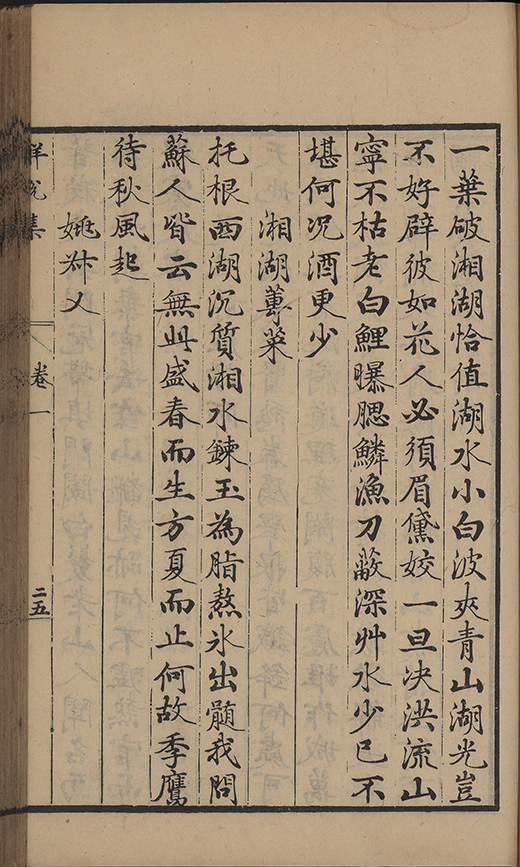 一葉破湘湖恰值湖水小白波夾青山湖光豈
不好辟彼如花人必須眉黛姣一旦决洪流山
寧不枯老白鯉曝腮鱗漁刀蔽深艸水少已不
堪何况酒更少
湘湖蓴菜
托根西湖沉質湘水鍊玉為脂熬氷出髄我問
蘇人皆云無此盛春而生方夏而止何故季鷹
待秋風起
姚㚘乂
祥兊集
卷一
二五